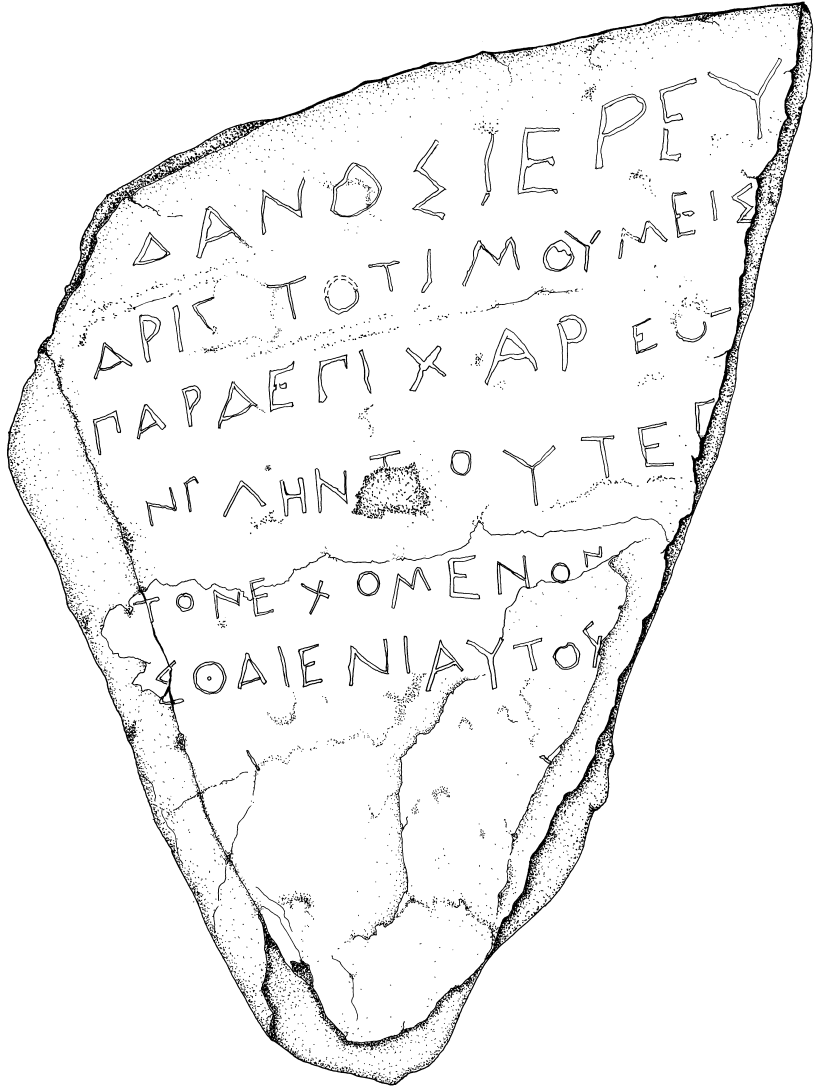 ΔΑΝΟΣΙΕΡΕΥ
ΑΡΙΣΤΟΤΙΜΟΥΜΕΙΣ
ΠΑΡΔΕΠΙΧΑΡΕΟ
ΝΠΛΗΝΤΟΥΤΕΠ
ΤΟΝΕΧΟΜΕΝΟΝ
ΣΘΑΙΕΝΙΑΥΤΟΥ